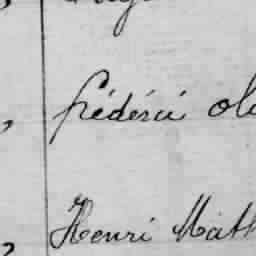 frédéric ol
Henri Matt